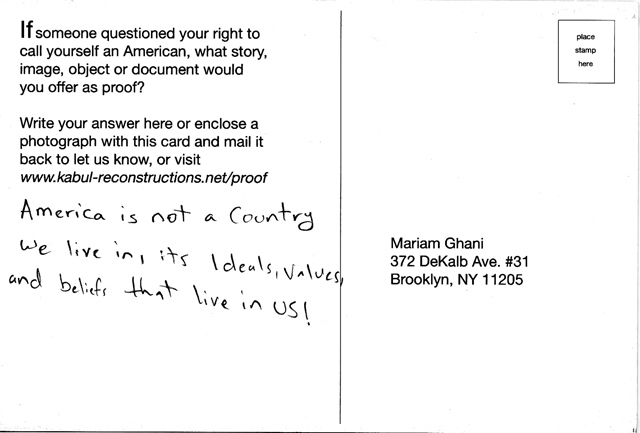 If someone questioned your right to
call yourself an American, what story,
image, object or document would
you offer as proof?
Write your answer here or enclose a
photograph with this card and mail it
back to let us know, or visit
www.kabul-reconstructions.net/proof
America is not a Country
we live in, its Ideals, values,
and beliefs that live in US!
place
stamp
here
Mariam Ghani
372 DeKalb Ave. #31
Brooklyn, NY 11205